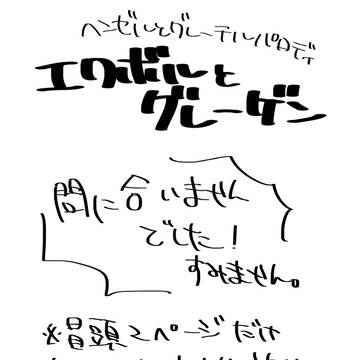 ヘンゼルとグレーテルパロディ
エクボルと
グレーゲン
間に合いません
でした!
すみません。
※冒頭2ページだけ